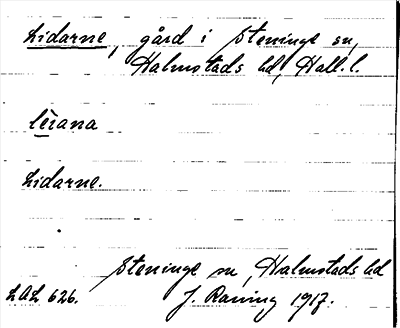 Lidarne, gård i Steninge sn,
Halmstads hd, Hall. l.
lèrana
Lidarne.
Steninge sn, Halmstads hd
LAL 626. J. Raning 1917.